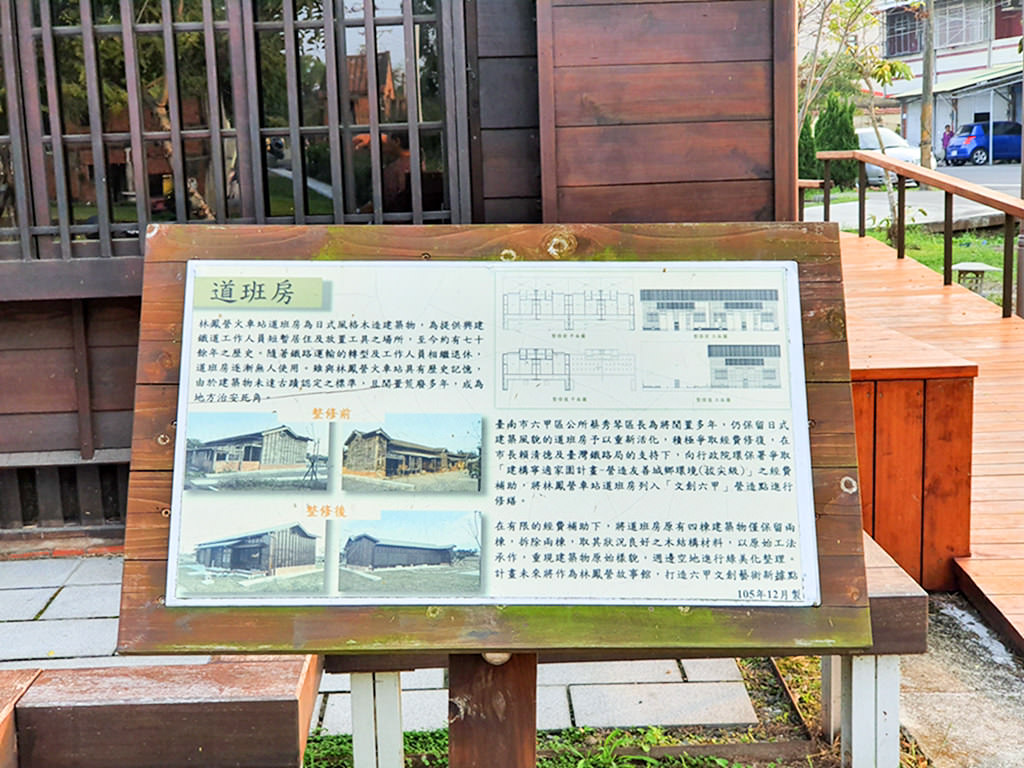 道班房
林鳳營火車站道班房為日式風格木造建築物，為提供興建
鐵道工作人員短暫居住及放置工具之場所，至今約有七十
餘年之歷史。隨著鐵路運輸的轉型及工作人員相繼退休，
道班房逐漸無人使用。雖與林鳳營火車站具有歷史記憶，
由於建築物未達古蹟認定之標準，且閒置荒廢多年，成為
地方治安死角。
整修前
整修後
臺南市六甲區公所蔡秀琴區長為將閒置多年，仍保留日式
建築風貌的道班房予以重新活化，積極爭取經費修復，在
市長賴清德及臺灣鐵路局的支持下，向行政院環保署爭取
「建構寧適家園計畫-營造友善城鄉環境(拔尖級)」之經費
補助，將林鳳營車站道班房列入「文創六甲」營造點進行
修繕。
在有限的經費補助下，將道班房原有四棟建築物僅保留兩
棟，拆除兩棟，取其狀況良好之木結構材料，以原始工法
承作，重現建築物原始樣貌，週邊空地進行綠美化整理。
計畫未來將作為林鳳營故事館，打造六甲文創藝術新據點
105年12月製